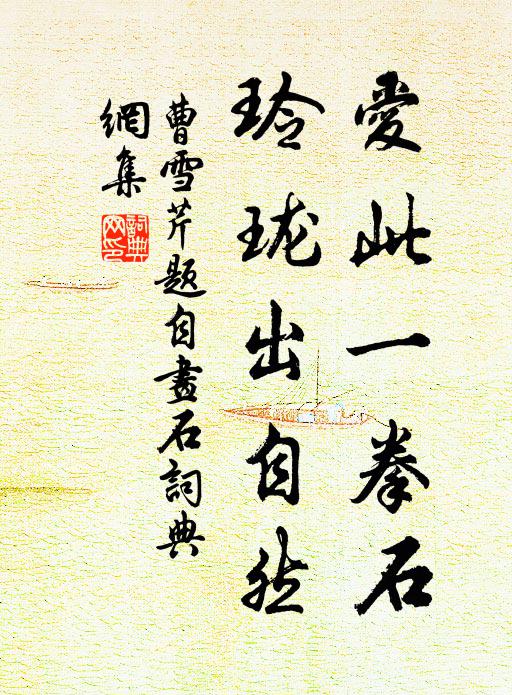 愛此一拳石
玲瓏出自然
曹雪芹題自畫石詞典
網集
詞典
网印